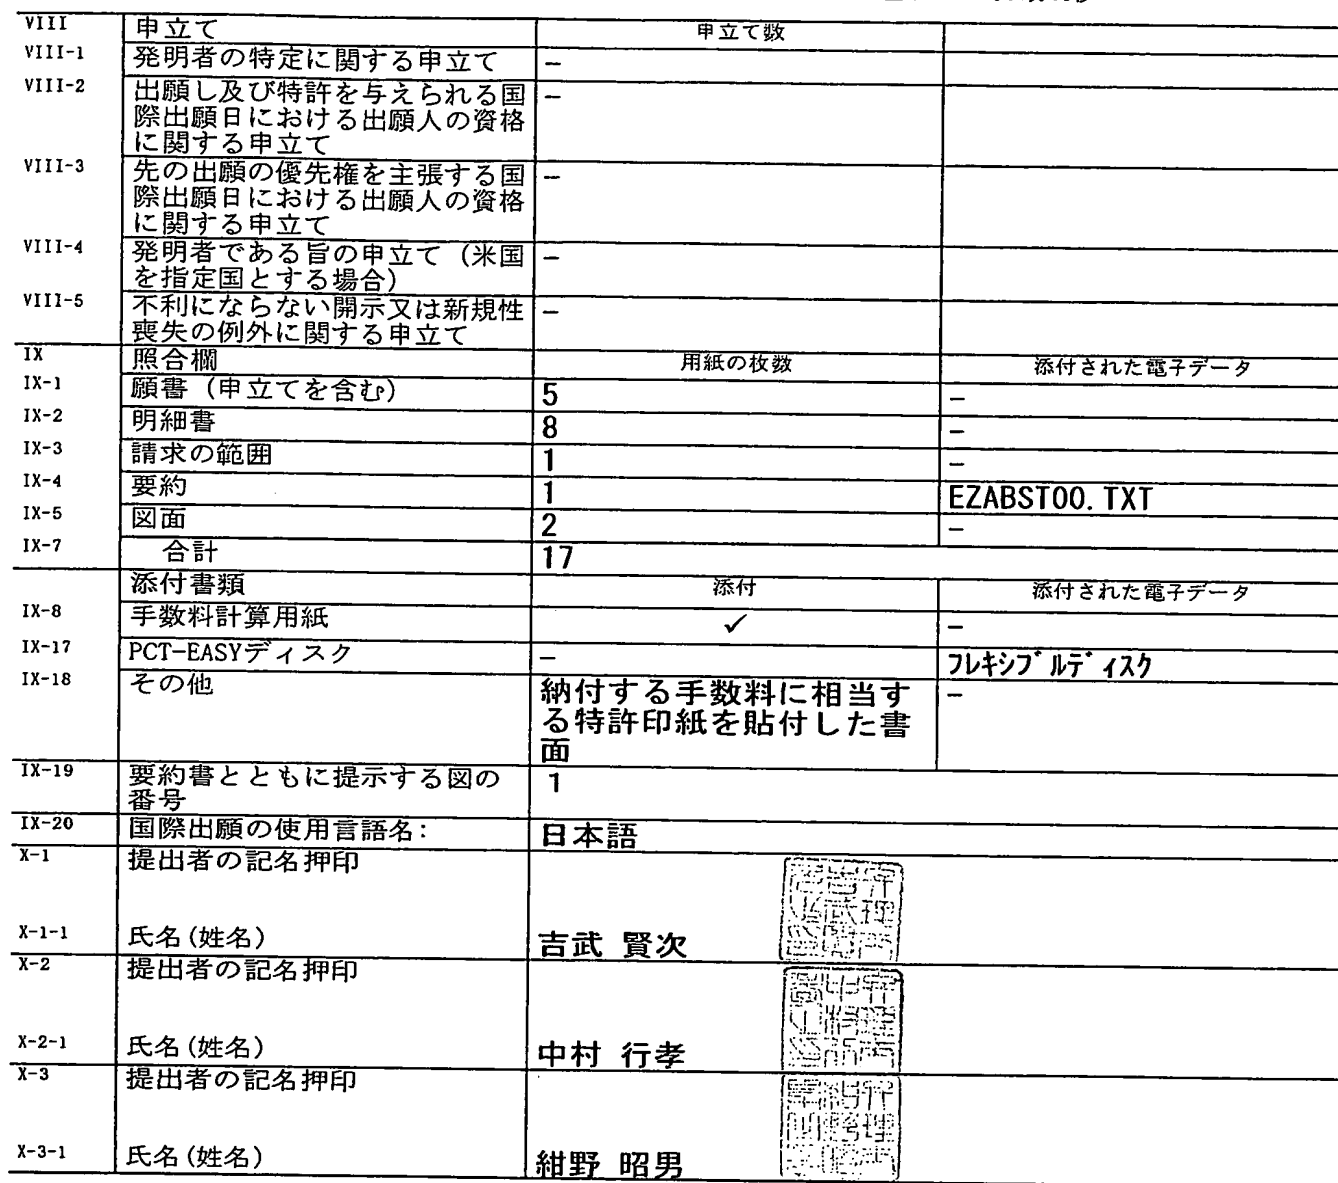 VIII 申立て 申立て数
VIII-1 発明者の特定に関する申立て -
VIII-2 出願し及び特許を与えられる国 -
際出願日における出願人の資格
に関する申立て
VIII-3 先の出願の優先権を主張する国 -
際出願日における出願人の資格
に関する申立て
VIII-4 発明者である旨の申立て（米国 -
を指定国とする場合）
VIII-5 不利にならない開示又は新規性 -
喪失の例外に関する申立て
IX 照合欄 用紙の枚数 添付された電子データ
IX-1 願書（申立てを含む） 5 -
IX-2 明細書 8 -
IX-3 請求の範囲 1 -
IX-4 要約 1 EZABST00.TXT
IX-5 図面 2 -
IX-7 合計 17
添付書類 添付 添付された電子データ
IX-8 手数料計算用紙 ✓ -
IX-17 PCT-EASYディスク - フレキシブルディスク
IX-18 その他 納付する手数料に相当す -
る特許印紙を貼付した書
面
IX-19 要約書とともに提示する図の 1
番号
IX-20 国際出願の使用言語名: 日本語
X-1 提出者の記名押印
X-1-1 氏名(姓名) 吉武 賢次
X-2 提出者の記名押印
X-2-1 氏名(姓名) 中村 行孝
X-3 提出者の記名押印
X-3-1 氏名(姓名) 紺野 昭男